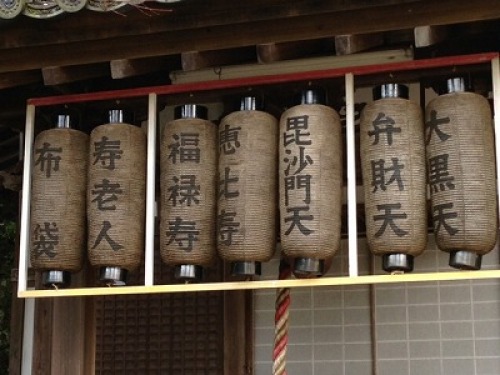 大黒天
弁財天
毘沙門天
恵比寿
福禄寿
寿老人
布袋